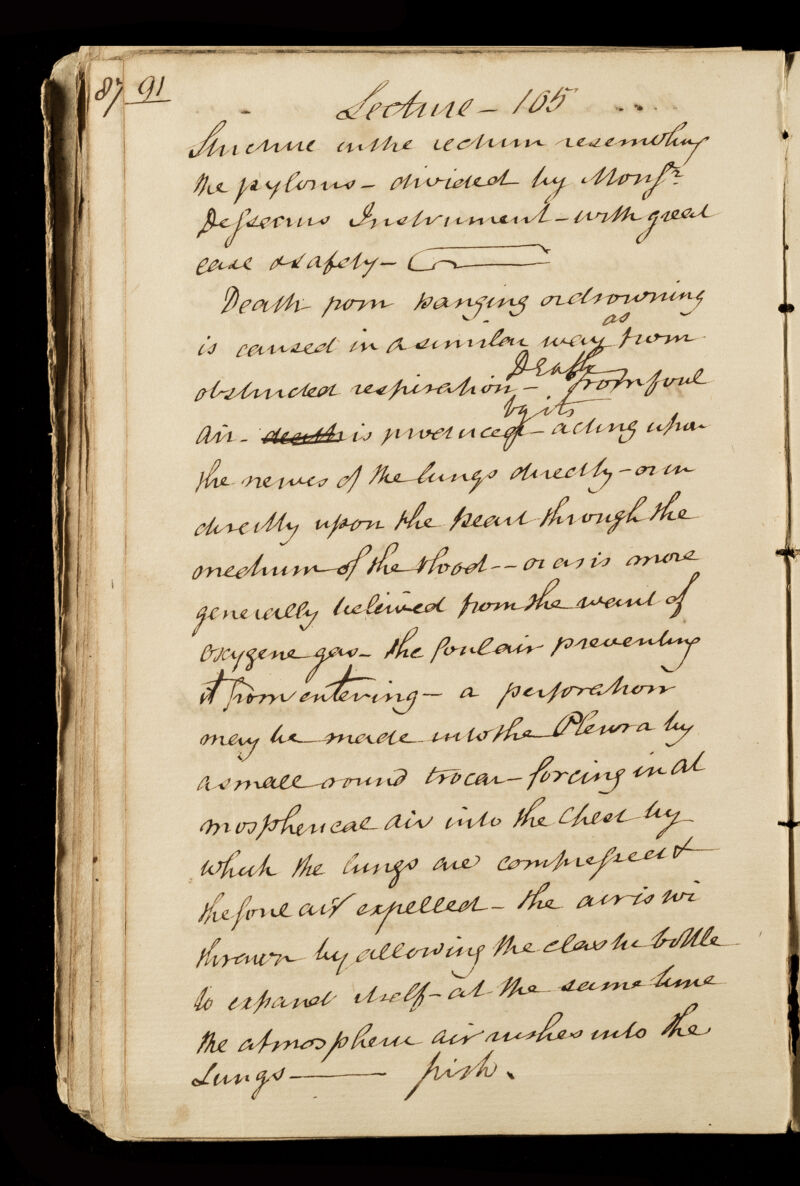 87 91
Lecture - 105
Structure in the rectum resembling
the pylorus - divided by Monsr.
Dessecus Instrument - with great
ease & safety -
Death from hanging or drowning
is caused in a similar way as from
obstructed respiration - Death from foul
air - death is produced - by its acting upon
the nerves of the lungs directly - or in
directly upon the heart through the
medium of the blood -- or as is more
generally beleived from the want of
oxygene gas - the foul air preventing
it from entering - a perforation
may be made into the Pleura by
a small round trocar - forcing in at
mospherical air into the Chest by
which the lungs are compressed &
the foul air expelled - the air is wi
thrawn by allowing the elastic bottle
to expand itself - at the same time
the atmospheric air rushes into the
Lungs —